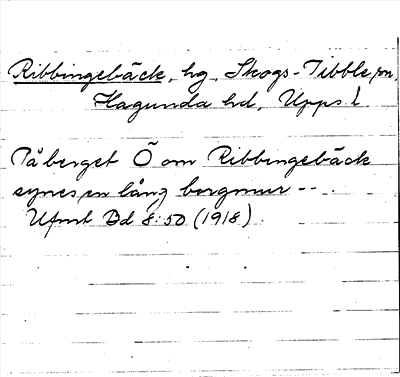 Ribbingebäck, hg, Skogs-Tibble sn,
Hagunda hd, Upps. l.
På berget Ö om Ribbingebäck
synes en lång borgmur --.
Ufmt Bd 8:50 (1918).